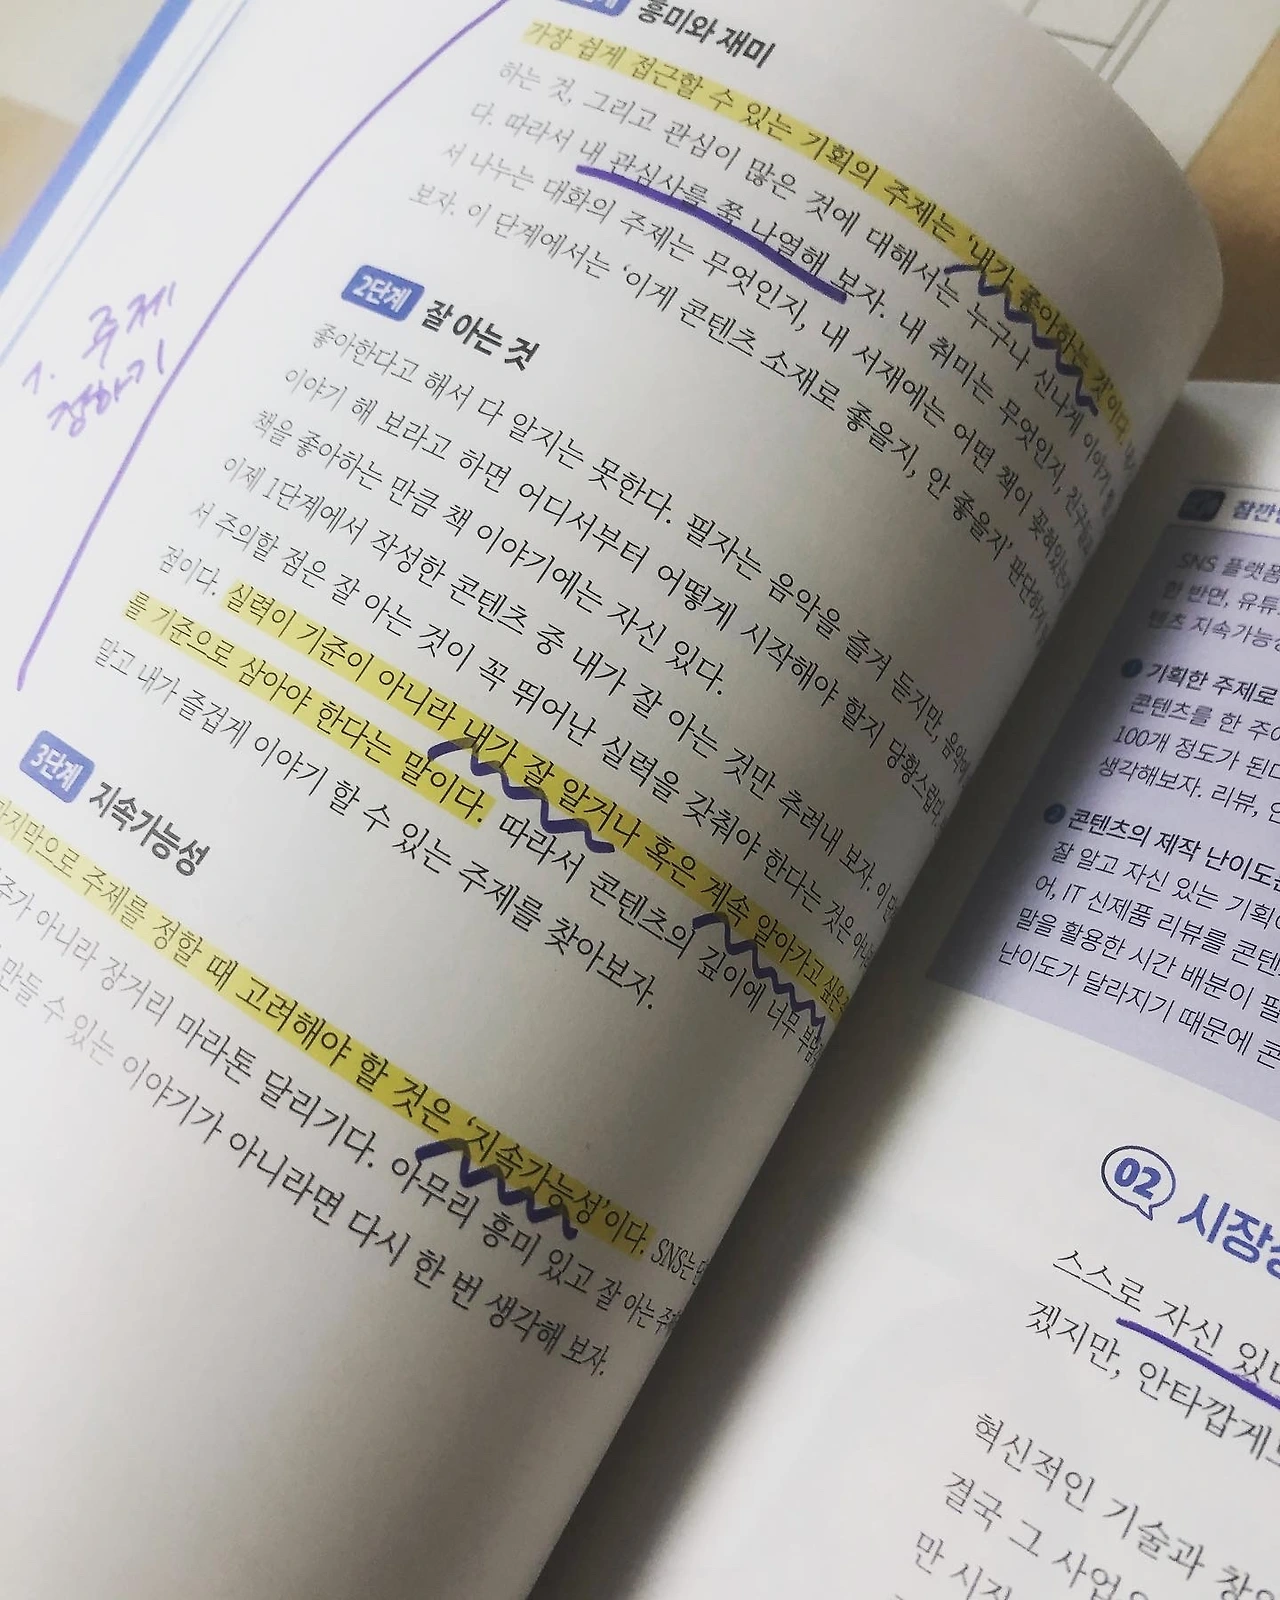 흥미와 재미
가장 쉽게 접근할 수 있는 기획의 주제는 '내가 좋아하는 것'이다.
하는 것, 그리고 관심이 많은 것에 대해서는 누구나 신나게 이야기 할
다. 따라서 내 관심사를 쭉 나열해 보자. 내 취미는 무엇인지, 친구들과
서 나누는 대화의 주제는 무엇인지, 내 서재에는 어떤 책이 꽂혀있는지
보자. 이 단계에서는 '이게 콘텐츠 소재로 좋을지, 안 좋을지' 판단하지
2단계 잘 아는 것
좋아한다고 해서 다 알지는 못한다. 필자는 음악을 즐겨 듣지만, 음악
이야기 해 보라고 하면 어디서부터 어떻게 시작해야 할지 당황스럽다.
책을 좋아하는 만큼 책 이야기에는 자신 있다.
이제 1단계에서 작성한 콘텐츠 중 내가 잘 아는 것만 추려내 보자. 이
서 주의할 점은 잘 아는 것이 꼭 뛰어난 실력을 갖춰야 한다는 것은 아니
점이다. 실력이 기준이 아니라 내가 잘 알거나 혹은 계속 알아가고 싶은
를 기준으로 삼아야 한다는 말이다. 따라서 콘텐츠의 깊이에 너무
말고 내가 즐겁게 이야기 할 수 있는 주제를 찾아보자.
3단계 지속가능성
마지막으로 주제를 정할 때 고려해야 할 것은 '지속가능성'이다. SNS는
주가 아니라 장거리 마라톤 달리기다. 아무리 흥미 있고 잘 아는
만들 수 있는 이야기가 아니라면 다시 한 번 생각해 보자.
1. 주제
정하기
잠깐
SNS 플랫폼
한 반면, 유튜
텐츠 지속가능
1 기획한 주제로
콘텐츠를 한 주
100개 정도가 된다
생각해보자. 리뷰,
2 콘텐츠의 제작 난이도
잘 알고 자신 있는 기획
어, IT 신제품 리뷰를 콘텐
말을 활용한 시간 배분이 필
난이도가 달라지기 때문에 콘
02 시장
스스로 자신 있
겠지만, 안타깝게
혁신적인 기술과 창
결국 그 사업
만 시장